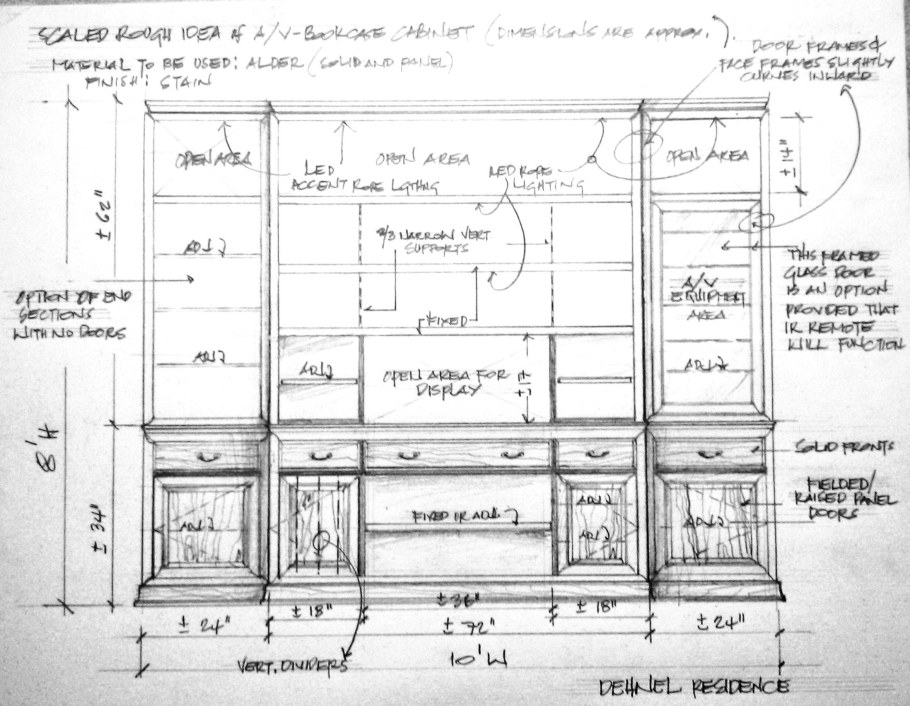 SCALED ROUGH IDEA of A/V-BOOKCASE CABINET (DIMENSIONS ARE APPROX.).
MATERIAL TO BE USED: ALDER (SOLID AND PANEL)
FINISH: STAIN
DOOR FRAMES &
FACE FRAMES SLIGHTLY
CURVES INWARD
OPEN AREA
OPEN AREA
OPEN AREA
LED
ACCENT ROPE LGTHNG
LED ROPE
LIGHTING
± 14"
± 62"
2/3 NARROW VERT
SUPPORTS
ADJ
THIS FRAMED
GLASS DOOR
IS AN OPTION
PROVIDED THAT
IR REMOTE
WILL FUNCTION
A/V
EQUIPMENT
AREA
OPTION OF END
SECTIONS
WITH NO DOORS
FIXED
ADJ
ADJ
OPEN AREA FOR
DISPLAY
ADJ
8' H
SOLID FRONTS
FIELDED/
RAISED PANEL
DOORS
± 34"
ADJ
FIXED OR ADJ.
ADJ
ADJ
ADJ
± 24"
± 18"
± 36"
± 18"
± 24"
± 72"
VERT. DIVIDERS
10' W
DEHNEL RESIDENCE